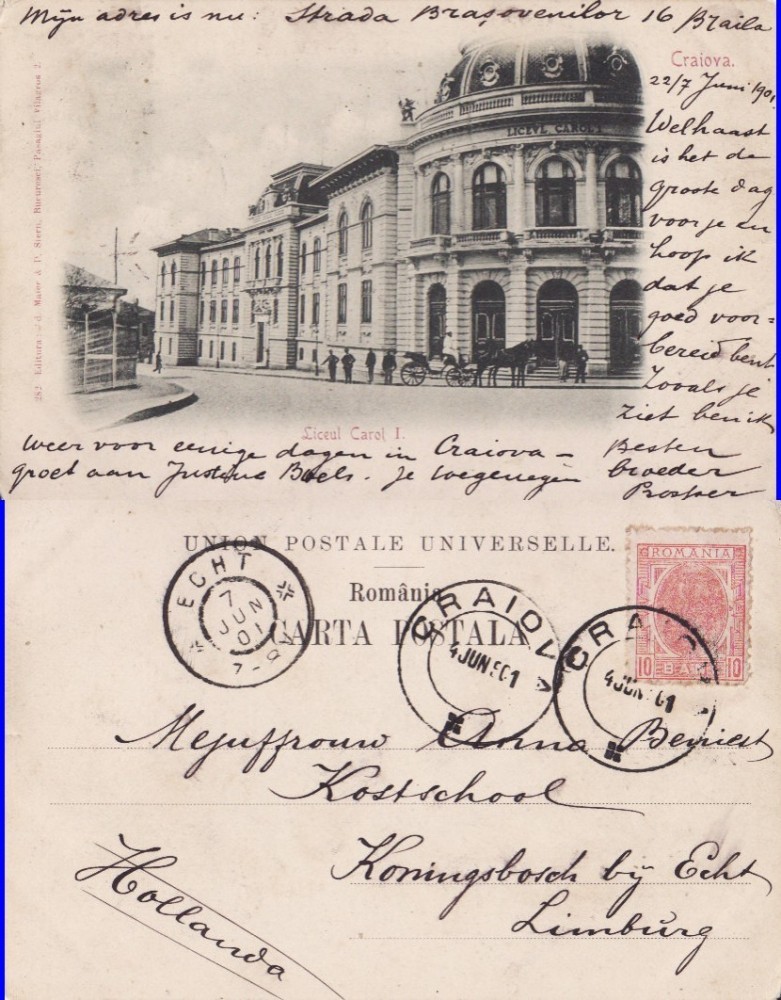 Mijn adres is nu: Strada Brașovenilor 16 Braila
Craiova.
22/7 Juni 1901
Welhaast
is het de
groote dag
voor je en
hoop ik
dat je
goed voor-
bereid bent
Zooals je
ziet ben ik
weer voor eenige dagen in Craiova –
groet aan Justine Boels. Je toegenegen
Besten
broeder
Prosper
LICEUL CAROL I
Liceul Carol I.
282 Editura: Ad. Maier & D. Stern, Bucuresci, Pasagiul Vilagros 2.
UNION POSTALE UNIVERSELLE.
România
CARTA POSTALA
ECHT
7
JUN
01
7-8
CRAIOVA
4 JUN 901
CRAIOVA
4 JUN 901
ROMÂNIA
10 BANI 10
Mejuffrouw Anna Beniest
Kostschool
Koningsbosch bij Echt
Limburg
Hollanda